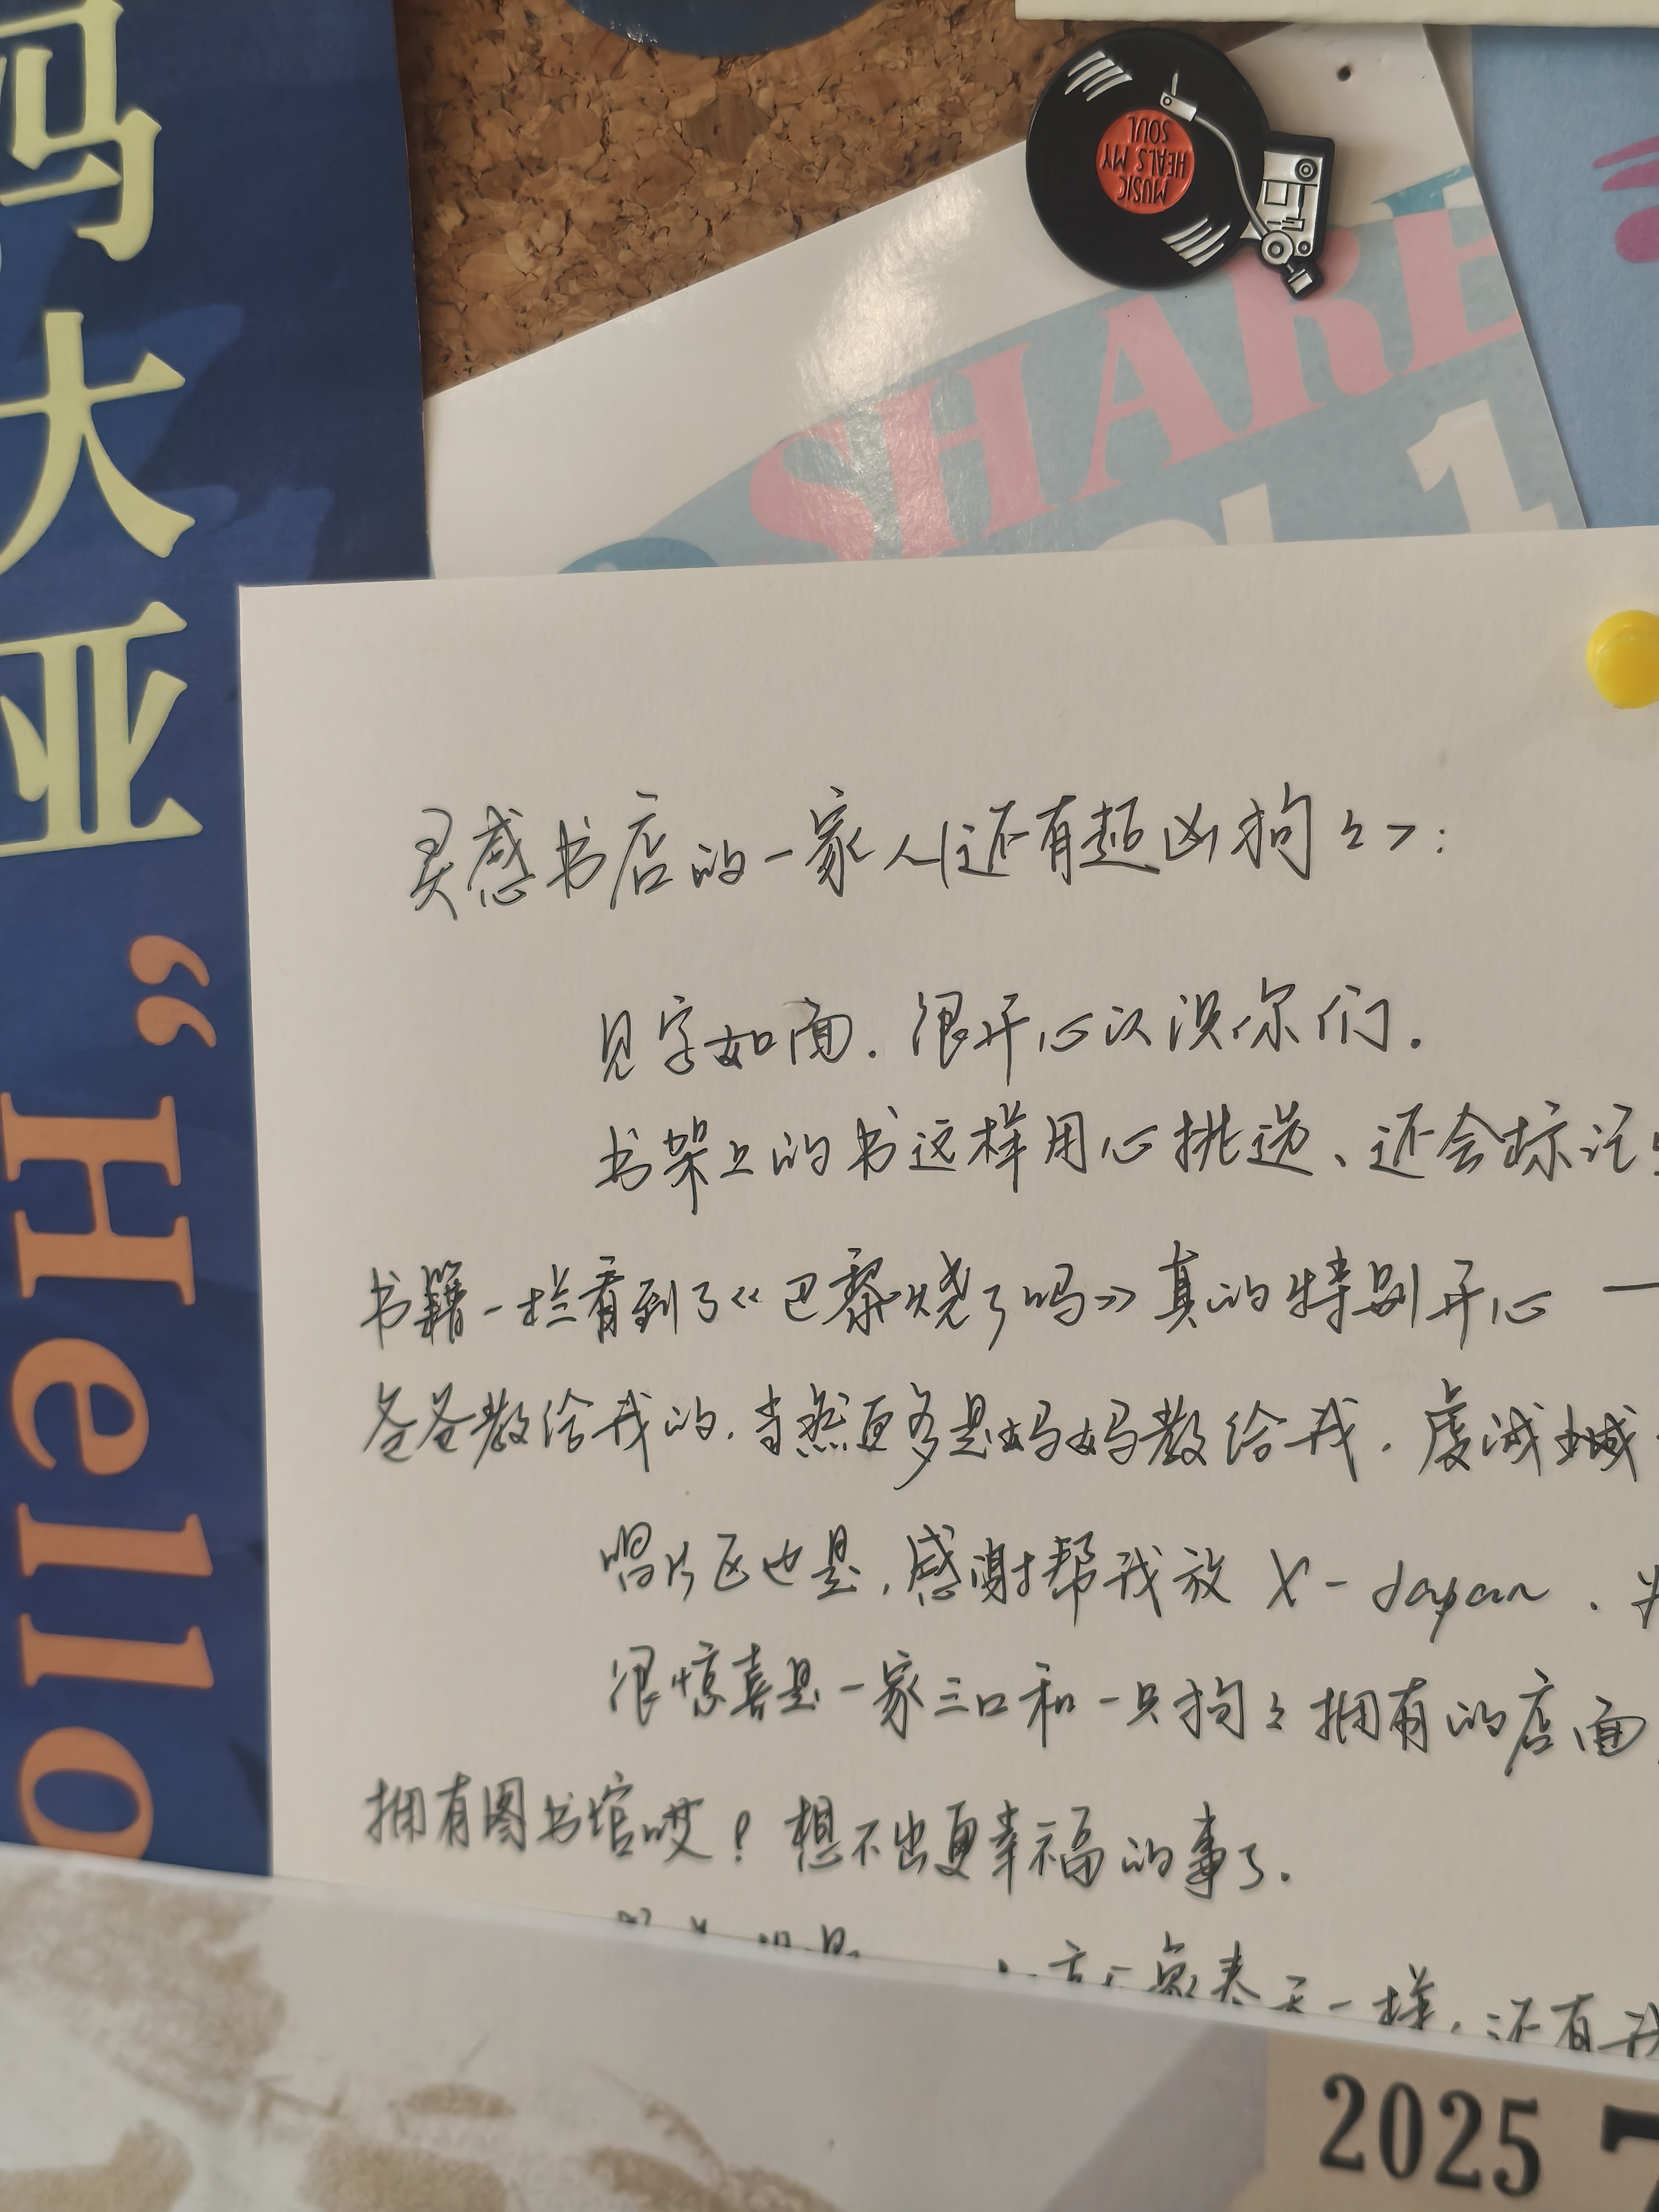 大
亚
“Hello
MUSIC
HEALS MY
SOUL
SHARE
灵感书店的一家人(还有超凶狗々):
见字如面. 很开心认识你们.
书架上的书这样用心挑选、还会标记
书籍一栏看到了《巴黎烧了吗》真的特别开心 一
爸爸教给我的. 当然更多是妈妈教给我. 虔诚
唱片区也是, 感谢帮我放 X-Japan.
很惊喜是一家三口和一只狗々拥有的店面
拥有图书馆哎! 想不出更幸福的事了.
象春天一样, 还有我
2025